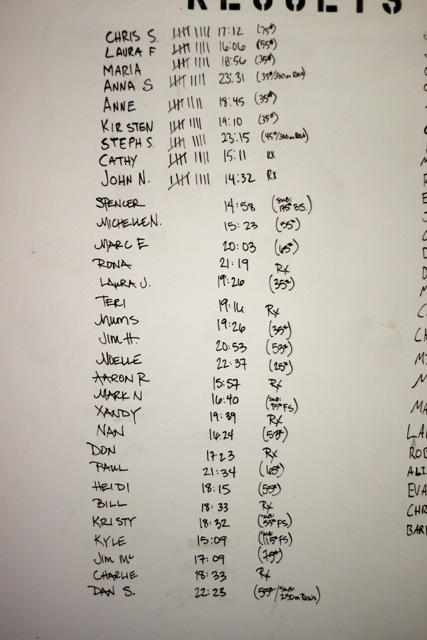 RESULTS
CHRIS S. 17:12 (75#)
LAURA F 16:06 (55#)
MARIA 18:56 (35#)
ANNA S 23:31 (35#/300m Row)
ANNE 18:45 (35#)
KIRSTEN 19:10 (35#)
STEPH S. 23:15 (45#/300m Row)
CATHY 15:11 RX
JOHN N. 14:32 RX
SPENCER 14:58
MICHELLE N. 15:23 (55#)
MARC E 20:03 (65#)
RONA 21:19 Rx
LAURA J. 19:26 (35#)
TERI 19:16 Rx
MUMS 19:26 (35#)
JIM H. 20:53 (53#)
NOELLE 22:37 (25#)
AARON R 15:57 Rx
MARK N 16:40 (SUB: 95# FS)
XANDY 19:39 Rx
NAN 16:24 (53#)
DON 17:23 Rx
PAUL 21:34 (65#)
HEIDI 18:15 (55#)
BILL 18:33 Rx
KRISTY 18:32 (SUB: 53# FS)
KYLE 15:09 (SUB: 115# FS)
JIM Mc 17:09 (75#)
CHARLIE 18:33 Rx
DAN S. 22:23 (55#/SUB: 250m Rows)